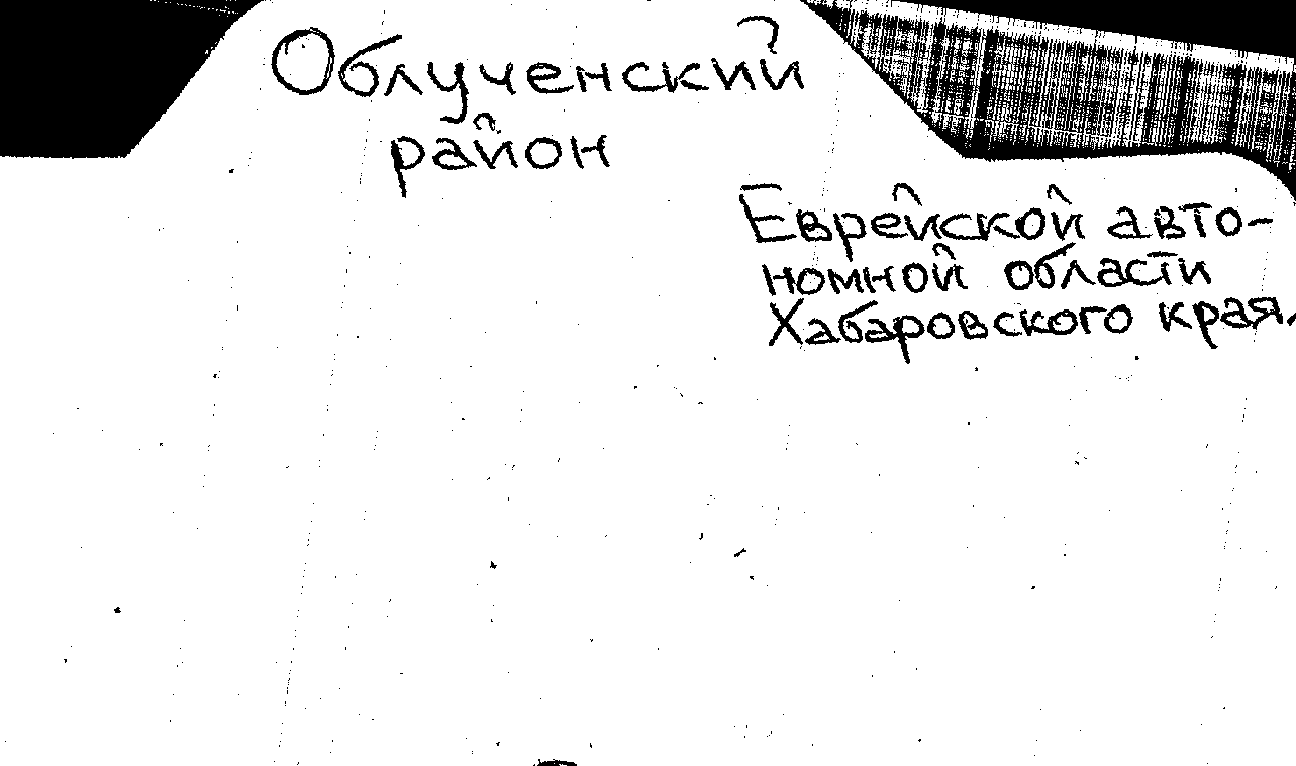 Облученский
район
Еврейской авто-
номной области
Хабаровского края.